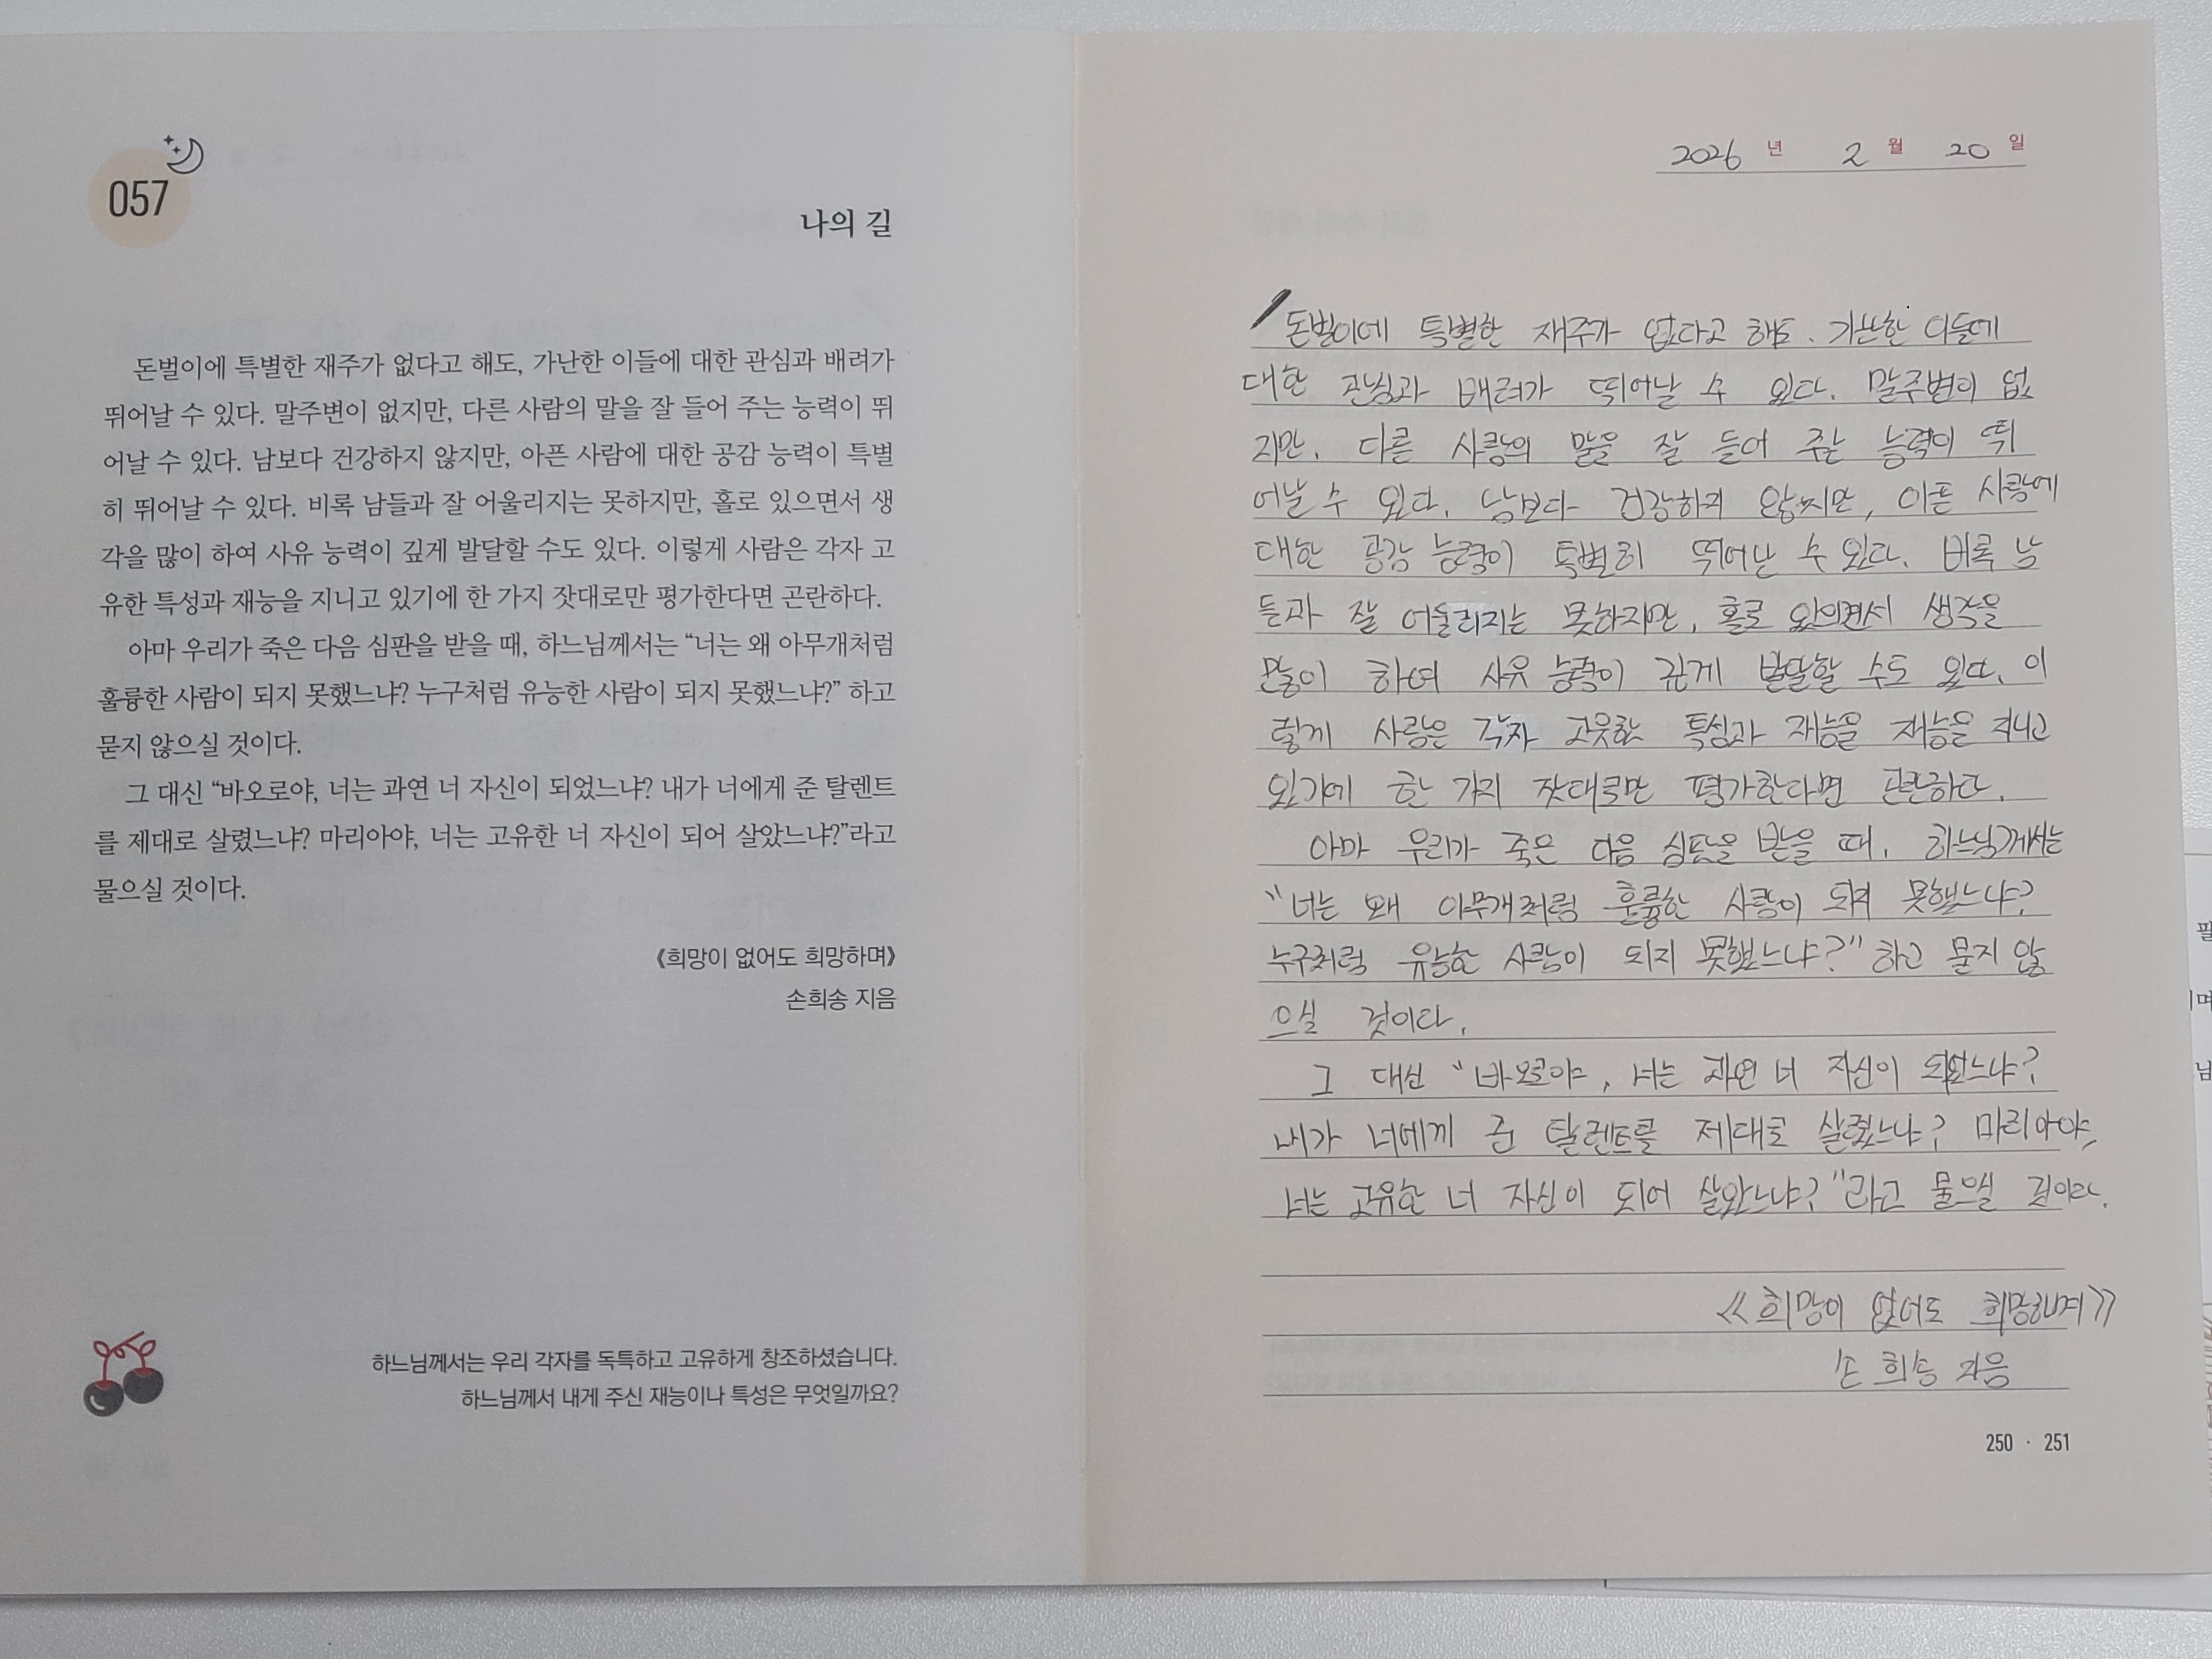 057
나의 길
돈벌이에 특별한 재주가 없다고 해도, 가난한 이들에 대한 관심과 배려가
뛰어날 수 있다. 말주변이 없지만, 다른 사람의 말을 잘 들어 주는 능력이 뛰
어날 수 있다. 남보다 건강하지 않지만, 아픈 사람에 대한 공감 능력이 특별
히 뛰어날 수 있다. 비록 남들과 잘 어울리지는 못하지만, 홀로 있으면서 생
각을 많이 하여 사유 능력이 깊게 발달할 수도 있다. 이렇게 사람은 각자 고
유한 특성과 재능을 지니고 있기에 한 가지 잣대로만 평가한다면 곤란하다.
아마 우리가 죽은 다음 심판을 받을 때, 하느님께서는 “너는 왜 아무개처럼
훌륭한 사람이 되지 못했느냐? 누구처럼 유능한 사람이 되지 못했느냐?” 하고
묻지 않으실 것이다.
그 대신 “바오로야, 너는 과연 너 자신이 되었느냐? 내가 너에게 준 탈렌트
를 제대로 살렸느냐? 마리아야, 너는 고유한 너 자신이 되어 살았느냐?”라고
물으실 것이다.
《희망이 없어도 희망하며》
손희송 지음
하느님께서는 우리 각자를 독특하고 고유하게 창조하셨습니다.
하느님께서 내게 주신 재능이나 특성은 무엇일까요?
2026 년 2 월 20 일
돈벌이에 특별한 재주가 없다고 해도. 가난한 이들에
대한 관심과 배려가 뛰어날 수 있다. 말주변이 없
지만, 다른 사람의 말을 잘 들어 주는 능력이 뛰
어날 수 있다. 남보다 건강하지 않지만, 아픈 사람에
대한 공감 능력이 특별히 뛰어난 수 있다. 비록 남
들과 잘 어울리지는 못하지만, 홀로 있으면서 생각을
많이 하여 사유 능력이 깊게 발달할 수도 있다. 이
렇게 사람은 각자 고유한 특성과 재능을 재능을 지니고
있기에 한 가지 잣대로만 평가한다면 곤란하다.
아마 우리가 죽은 다음 심판을 받을 때, 하느님께서는
"너는 왜 아무개처럼 훌륭한 사람이 되지 못했느냐?
누구처럼 유능한 사람이 되지 못했느냐?" 하고 묻지 않
으실 것이다.
그 대신 "바오로야, 너는 과연 너 자신이 되었느냐?
내가 너에게 준 탈렌트를 제대로 살렸느냐? 마리아야,
너는 고유한 너 자신이 되어 살았느냐?"라고 물으실 것이다.
《희망이 없어도 희망하며》
손희송 지음
250 · 251